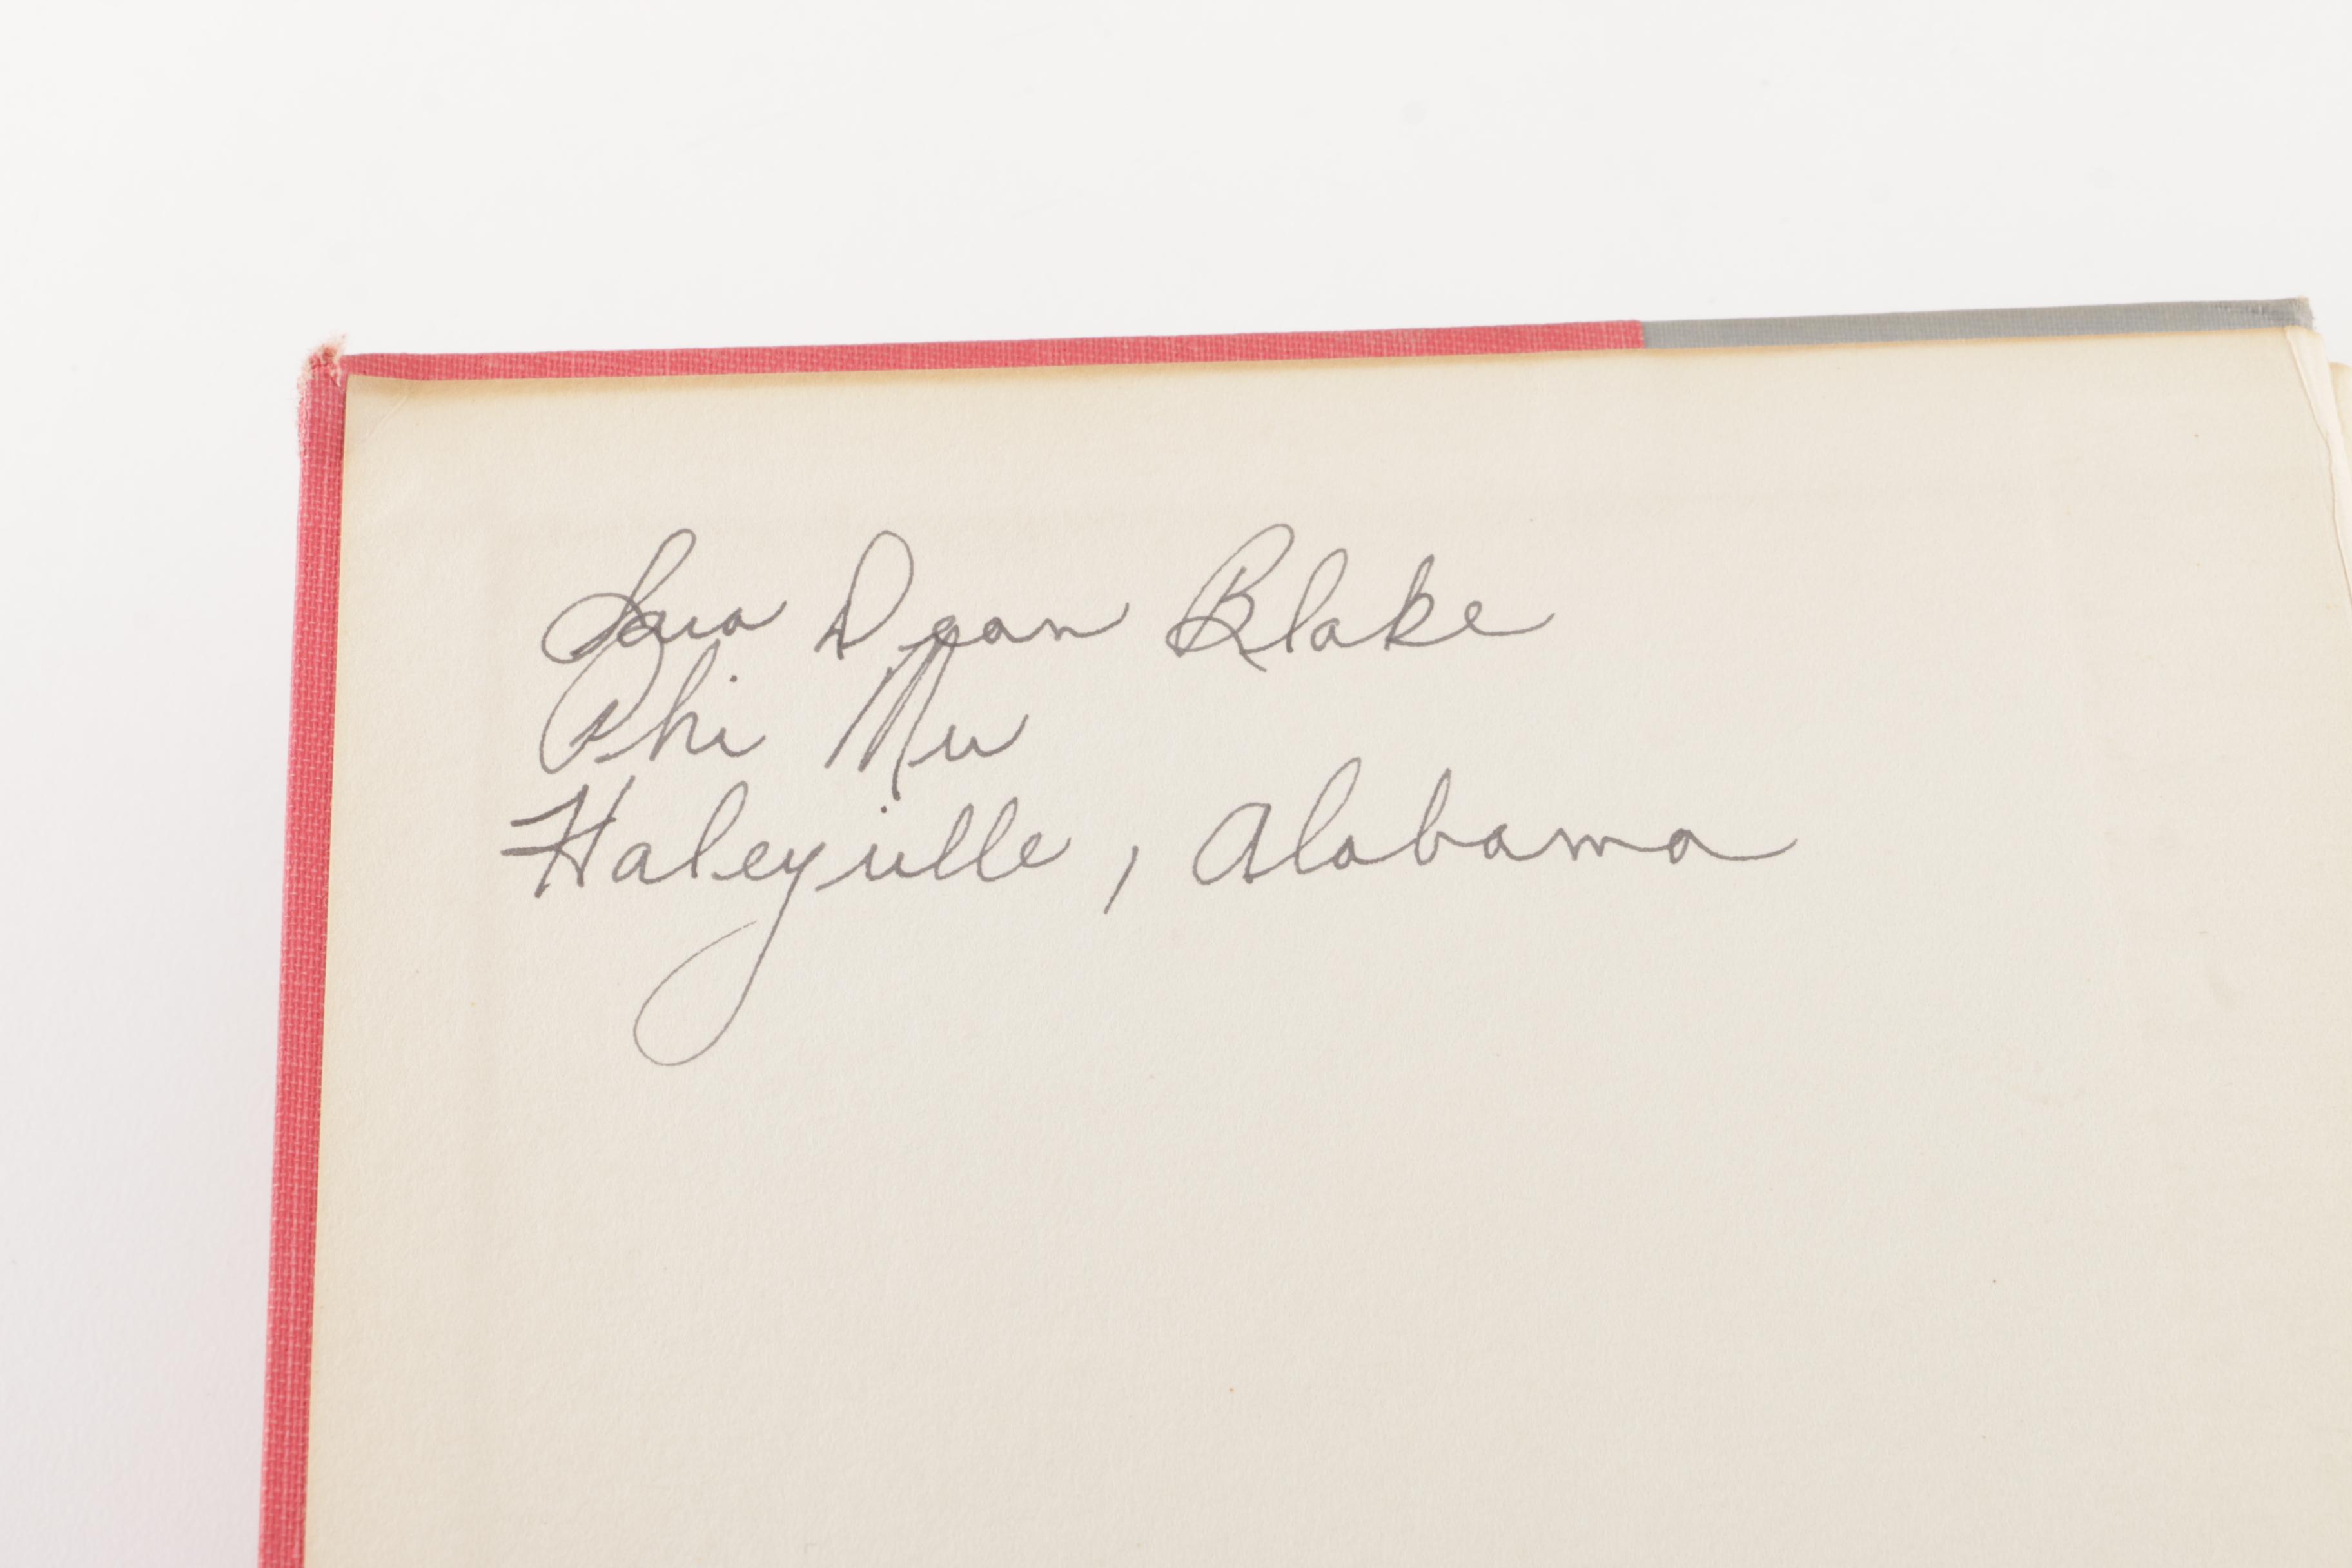 Sara Dean Blake
Phi Mu
Haleyville, Alabama